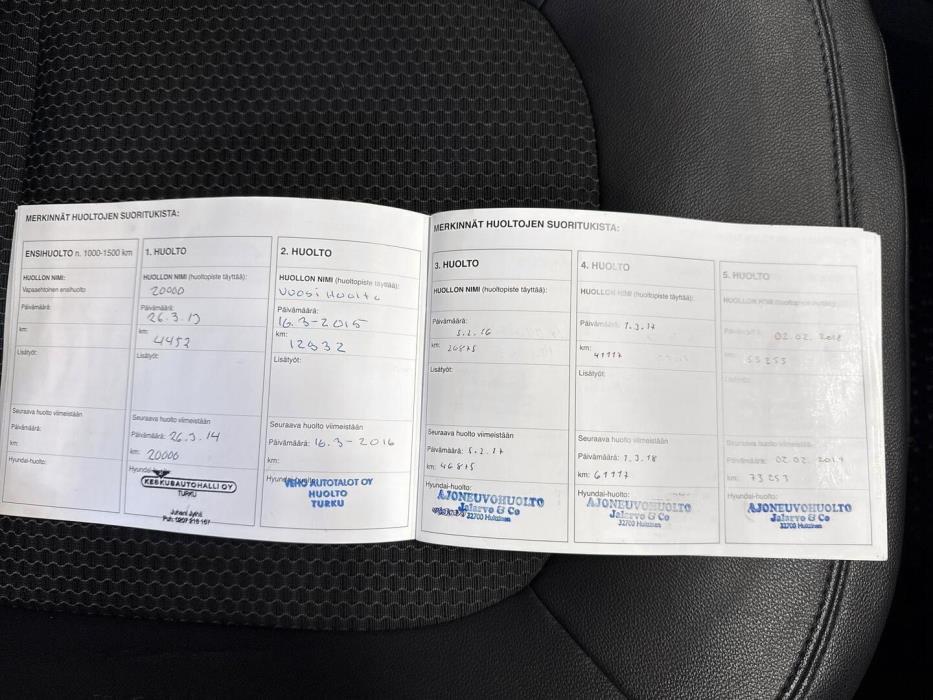 MERKINNÄT HUOLTOJEN SUORITUKISTA:
ENSIHUOLTO n. 1000-1500 km
HUOLLON NIMI:
Vapaaehtoinen ensihuolto
Päivämäärä:
km:
Lisätyöt:
Seuraava huolto viimeistään
Päivämäärä:
km:
Hyundai-huolto:
1. HUOLTO
HUOLLON NIMI (huoltopiste täyttää):
20000
Päivämäärä:
26.3.13
km:
4452
Lisätyöt:
Seuraava huolto viimeistään
Päivämäärä: 26.3.14
km: 20000
KESKUSAUTOHALLI OY
TURKU
2. HUOLTO
HUOLLON NIMI (huoltopiste täyttää):
VUOSI HUOLTO
Päivämäärä:
16.3-2015
km:
12932
Lisätyöt:
Seuraava huolto viimeistään
Päivämäärä: 16.3-2016
km:
VEHO AUTOTALOT OY
HUOLTO
TURKU
MERKINNÄT HUOLTOJEN SUORITUKISTA:
3. HUOLTO
HUOLLON NIMI (huoltopiste täyttää):
Päivämäärä:
5.2.16
km: 26875
Lisätyöt:
Seuraava huolto viimeistään
Päivämäärä: 5.2.17
km: 46875
Hyundai-huolto:
AJONEUVOHUOLTO
Jalarvo & Co
32700 Huittinen
4. HUOLTO
HUOLLON NIMI (huoltopiste täyttää):
Päivämäärä: 1.3.17
km:
41117
Lisätyöt:
Seuraava huolto viimeistään
Päivämäärä: 1.3.18
km: 61117
Hyundai-huolto:
AJONEUVOHUOLTO
Jalarvo & Co
32700 Huittinen
5. HUOLTO
HUOLLON NIMI (huoltopiste täyttää):
Päivämäärä: 02.02.2018
km: 53253
Lisätyöt:
Seuraava huolto viimeistään
Päivämäärä: 02.02.2019
km: 73253
Hyundai-huolto:
AJONEUVOHUOLTO
Jalarvo & Co
32700 Huittinen